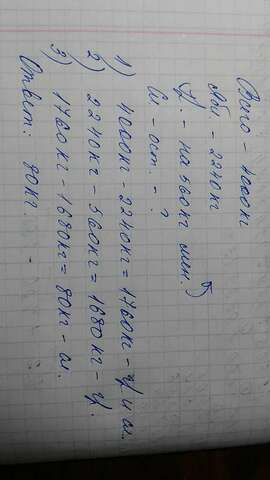 Всего - 4000кг
Ябл - 2240кг
Ц. - на 560кг мен.
И - ост. - ?
1) 4000кг - 2240кг = 1760кг - ц и и.
2) 2240кг - 560кг = 1680кг - ц.
3) 1760кг - 1680кг = 80кг - и.
Ответ: 80кг.